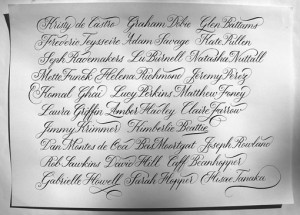 Kristy de Castro Graham Dobie Glen Battams
Frederic Teysseire Adam Savage Kate Pullen
Steph Racemakers Lu Burnell Natasha Nuttall
Mette Funck Helena Richmond Jeremy Perez
Komal Ghai Lucy Perkins Matthew Toney
Laura Griffin Amber Hadley Claire Farrow
Jimmy Krimmer Kimberlee Beattie
Dan Montes de Oca Bas Moortgat Joseph Rowland
Rob Hawkins David Hill Geoff Beanhopper
Gabrielle Howell Sarah Hopper Hisae Tanaka